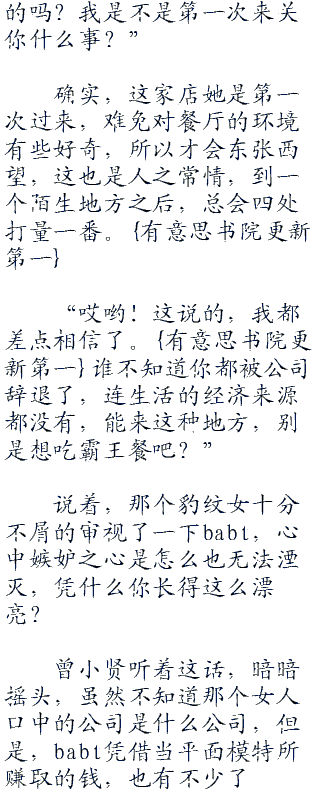 的吗？我是不是第一次来关
你什么事？”
确实，这家店她是第一
次过来，难免对餐厅的环境
有些好奇，所以才会东张西
望，这也是人之常情，到一
个陌生地方之后，总会四处
打量一番。{有意思书院更新
第一}
“哎哟！这说的，我都
差点相信了。{有意思书院更
新第一}谁不知道你都被公司
辞退了，连生活的经济来源
都没有，能来这种地方，别
是想吃霸王餐吧？”
说着，那个豹纹女十分
不屑的审视了一下babt，心
中嫉妒之心是怎么也无法湮
灭，凭什么你长得这么漂
亮？
曾小贤听着这话，暗暗
摇头，虽然不知道那个女人
口中的公司是什么公司，但
是，babt凭借当平面模特所
赚取的钱，也有不少了